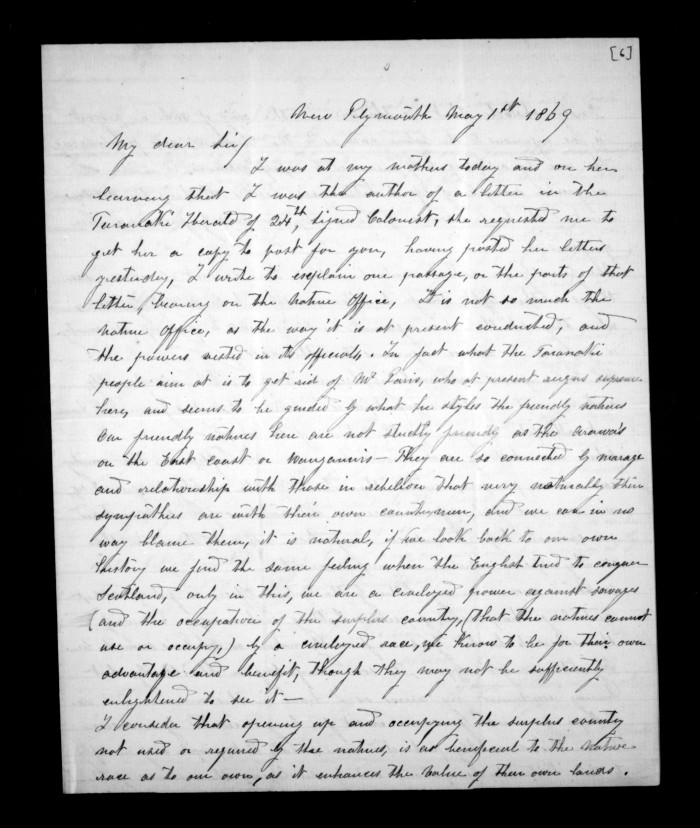 [6]
New Plymouth May 1st 1869
My dear Sir/
I was at my mothers today and on her
learning that I was the author of a letter in the
Taranaki Herald of 24th, signed Colonist, she requested me to
get her a copy to post for you, having posted her letters
yesterday, I write to explain one passage, or the parts of that
letter, bearing on the native office, It is not so much the
native office, as the way it is at present conducted, and
the powers vested in its officials. In fact what the Taranaki
people aim at is to get rid of Mr Paris, who at present reigns supreme
here, and seems to be guided by what he styles the friendly natives
Our friendly natives here are not strictly friendly as the Arawa's
on the East coast or Wanganuis - They are so connected by marage
and relationship with those in rebelion that very naturally their
sympathies are with their own countrymen, and we can in no
way blame them, it is natural, if we look back to our own
history we find the same feeling when the English tried to conquer
Scotland, only in this, we are a civelized power against savages
(and the occupation of the surplus country, (that the natives cannot
use or occupy,) by a civelized race, we know to be for their own
advantage and benefit, though they may not be sufficiently
enlightened to see it -
I consider that opening up and occupying the surplus country
not used or requred by the natives, is as beneficial to the native
race as to our own, as it enhances the value of their own lands.